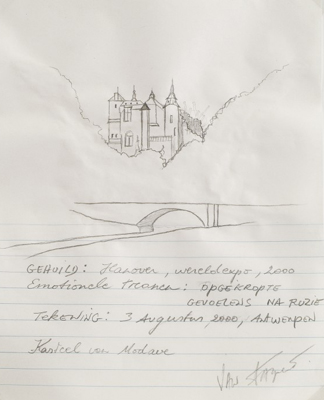 GEHUILD: Hanover, wereldexpo, 2000
Emotionele tranen: OPGEKROPTE
GEVOELENS NA RUZIE
TEKENING: 3 Augustus 2000, Antwerpen
Kasteel von Modave
VAN